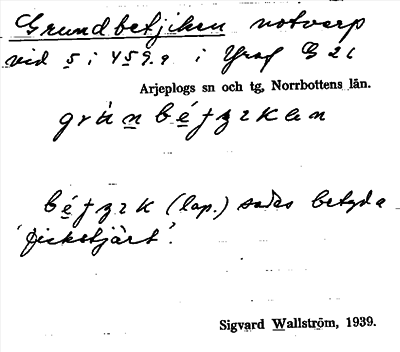 Grundbetjiken notvarp
vid 5 i 459.9 i G 26
Arjeplogs sn och tg, Norrbottens län.
(lap.) sades betyda
'fisketjärt'.
Sigvard Wallström, 1939.